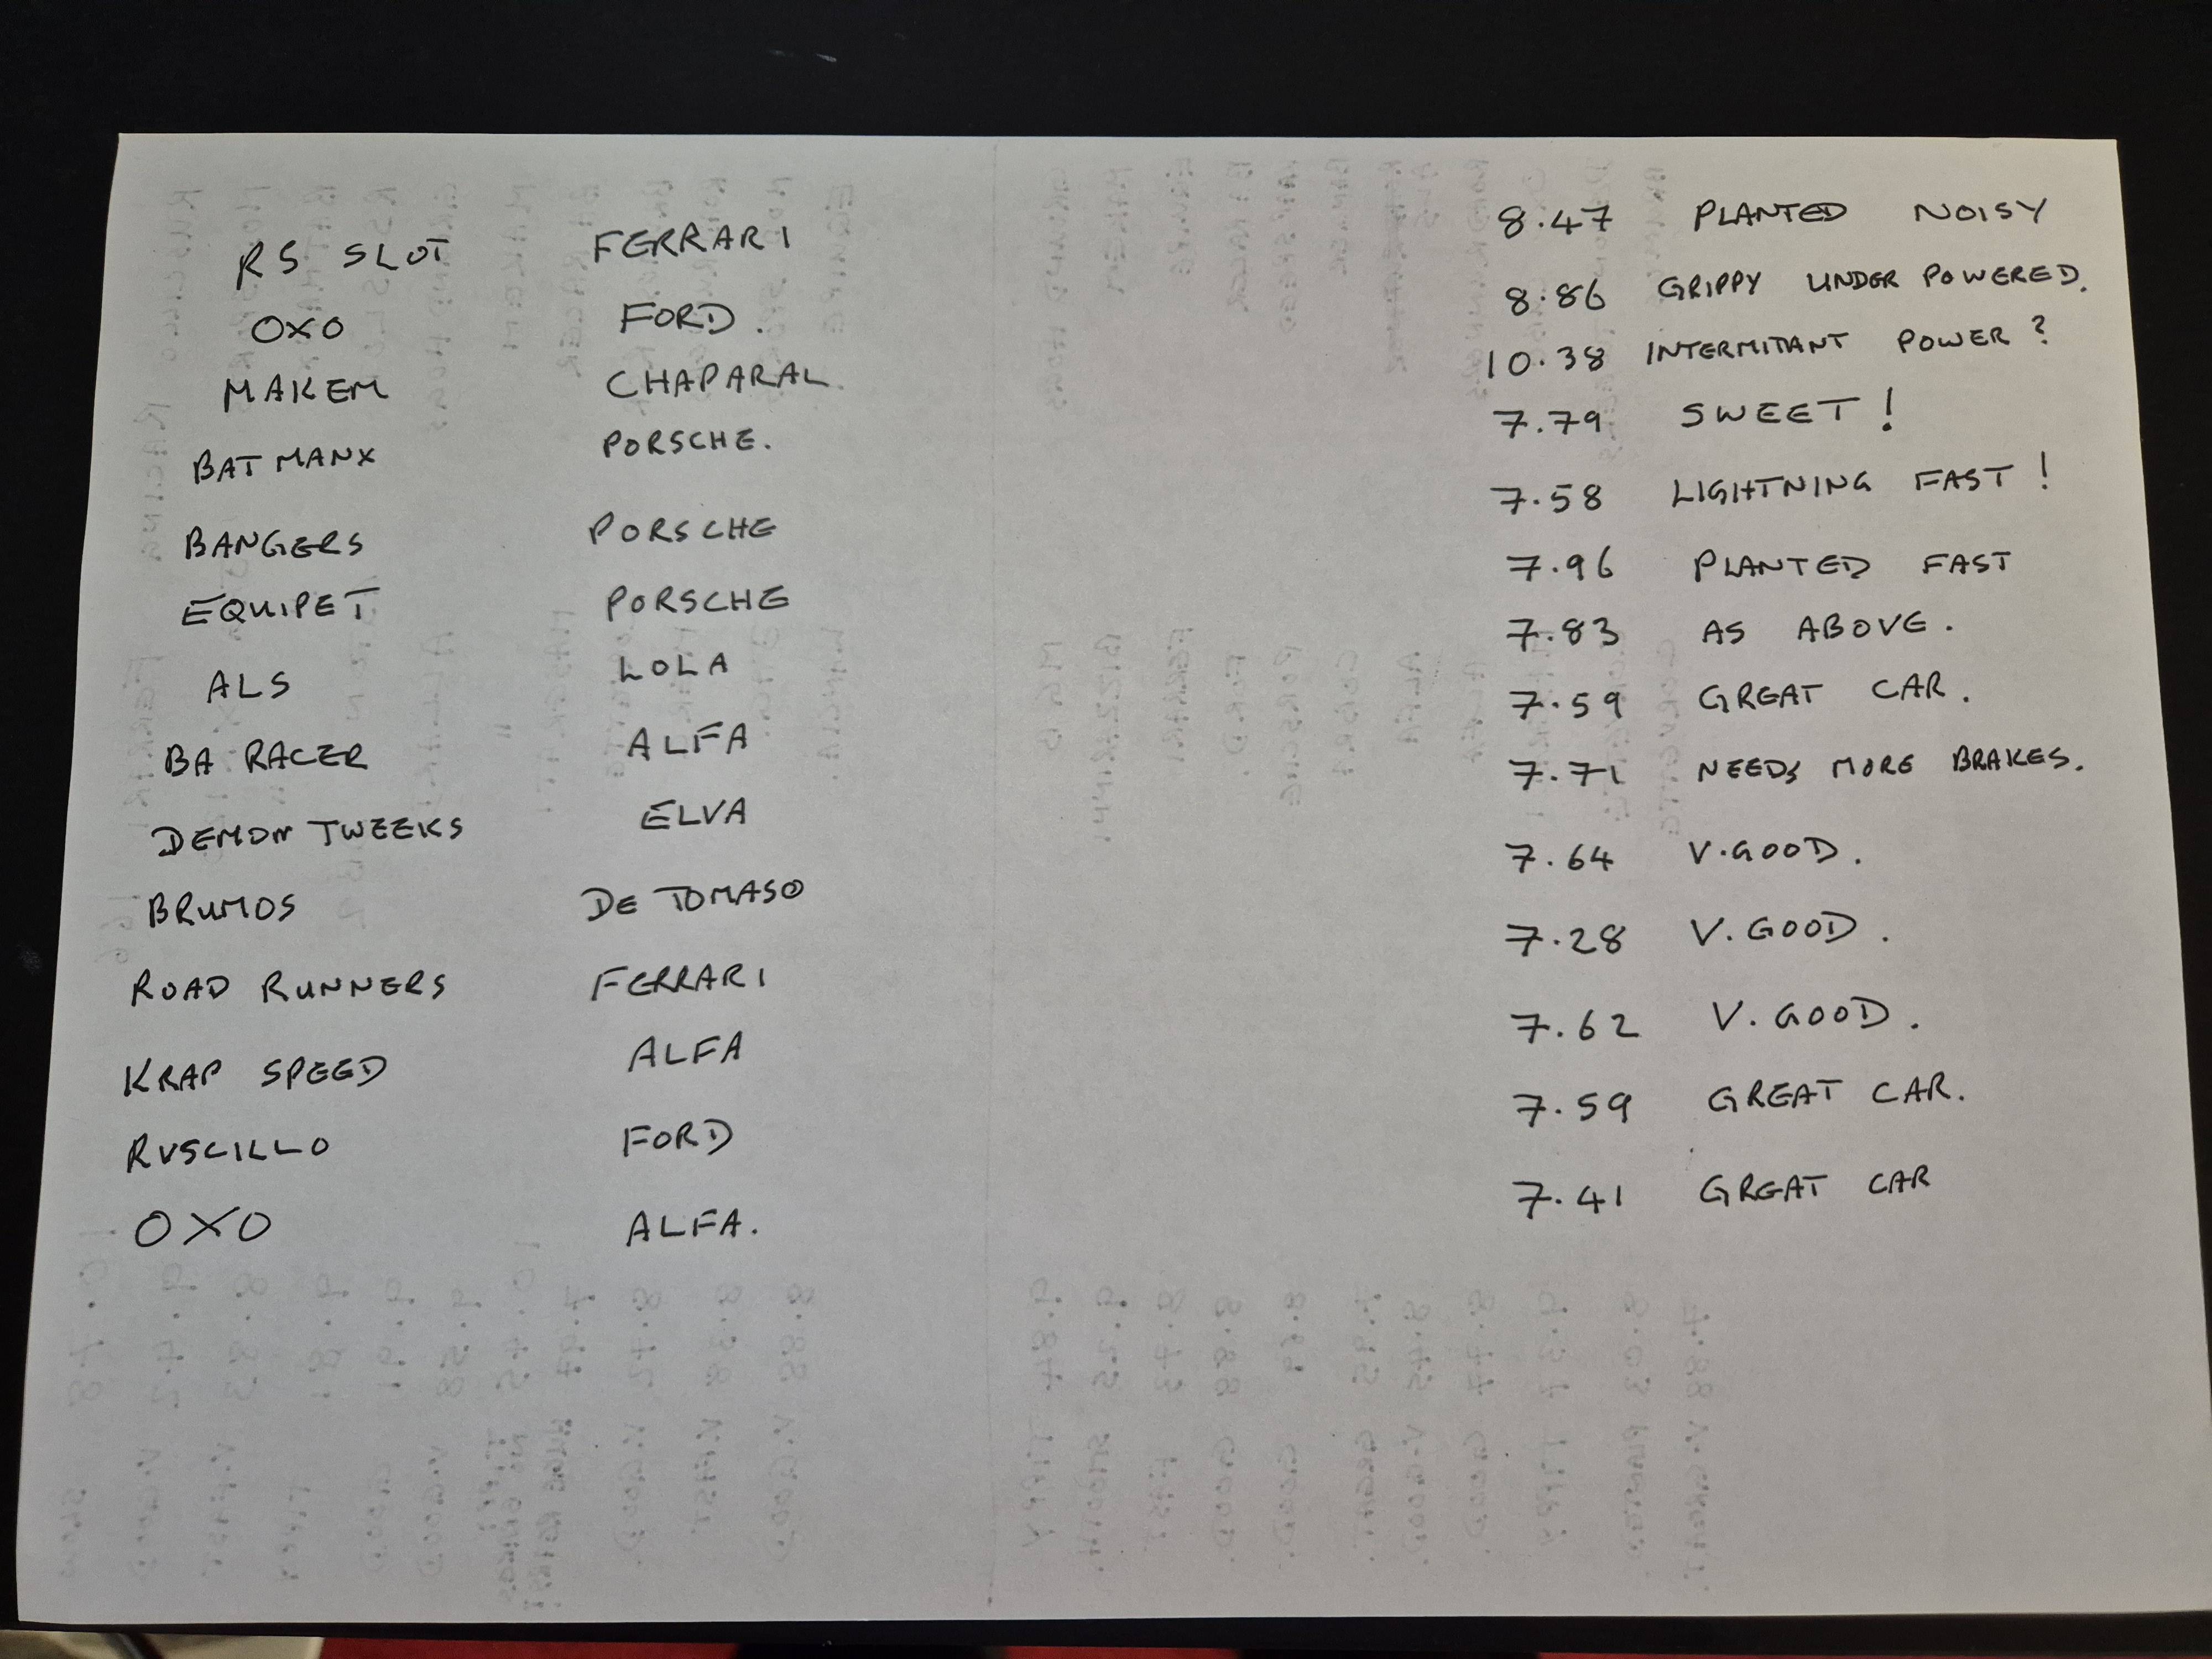 RS SLOT FERRARI 8.47 PLANTED NOISY
OXO FORD. 8.86 GRIPPY UNDER POWERED.
MAKEM CHAPARAL 10.38 INTERMITANT POWER?
BATMANX PORSCHE. 7.79 SWEET!
BANGERS PORSCHE 7.58 LIGHTNING FAST!
EQUIPE T PORSCHE 7.96 PLANTED FAST
ALS LOLA 7.83 AS ABOVE.
BA RACER ALFA 7.59 GREAT CAR.
DEMON TWEEKS ELVA 7.71 NEEDS MORE BRAKES.
BRUMOS DE TOMASO 7.64 V.GOOD.
ROAD RUNNERS FERRARI 7.28 V.GOOD.
KRAP SPEED ALFA 7.62 V.GOOD.
RUSCILLO FORD 7.59 GREAT CAR.
OXO ALFA. 7.41 GREAT CAR